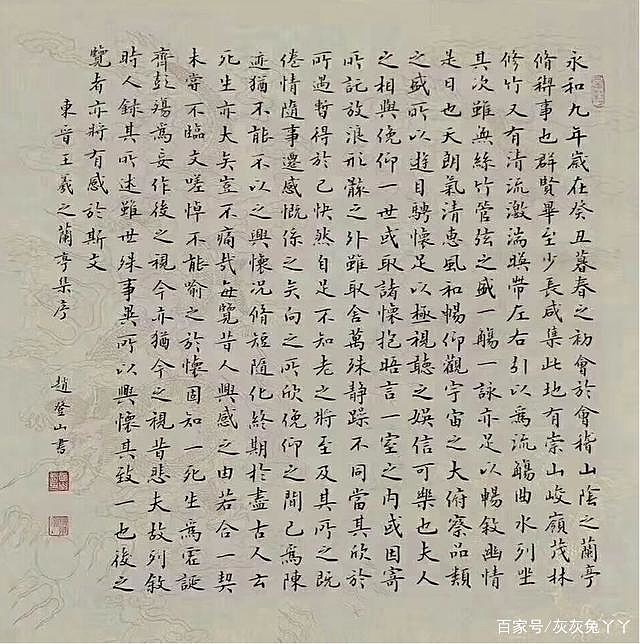 永和九年歲在癸丑暮春之初會於會稽山陰之蘭亭
脩禊事也群賢畢至少長咸集此地有崇山峻嶺茂林
修竹又有清流激湍暎帶左右引以為流觴曲水列坐
其次雖無絲竹管弦之盛一觴一詠亦足以暢敘幽情
是日也天朗氣清惠風和暢仰觀宇宙之大俯察品類
之盛所以遊目騁懷足以極視聽之娛信可樂也夫人
之相與俛仰一世或取諸懷抱晤言一室之內或因寄
所託放浪形骸之外雖取舍萬殊静躁不同當其欣於
所遇暫得於己快然自足不知老之將至及其所之既
倦情隨事遷感慨係之矣向之所欣俛仰之間已為陳
迹猶不能不以之興懷況脩短隨化終期於盡古人云
死生亦大矣豈不痛哉每覽昔人興感之由若合一契
未嘗不臨文嗟悼不能喻之於懷固知一死生為虛誕
齊彭殤為妄作後之視今亦猶今之視昔悲夫故列敘
時人録其所述雖世殊事異所以興懷其致一也後之
覽者亦將有感於斯文
東晉王羲之蘭亭集序
趙登山書
百家号/灰灰兔丫丫